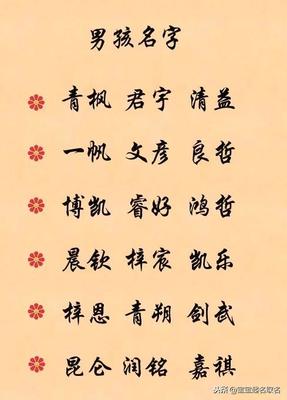 男孩名字
青枫 君宇 清益
一帆 文彦 良哲
博凯 睿好 鸿哲
晨钦 梓宸 凯乐
梓恩 青朔 剑武
昆仑 润铭 嘉祺
头条@宝宝起名取名